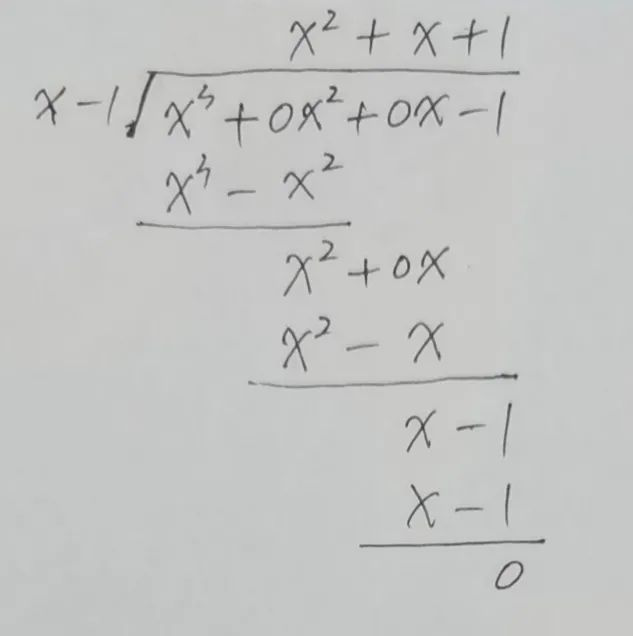 x² + x + 1
x - 1 √ x³ + 0x² + 0x - 1
x³ - x²
x² + 0x
x² - x
x - 1
x - 1
0